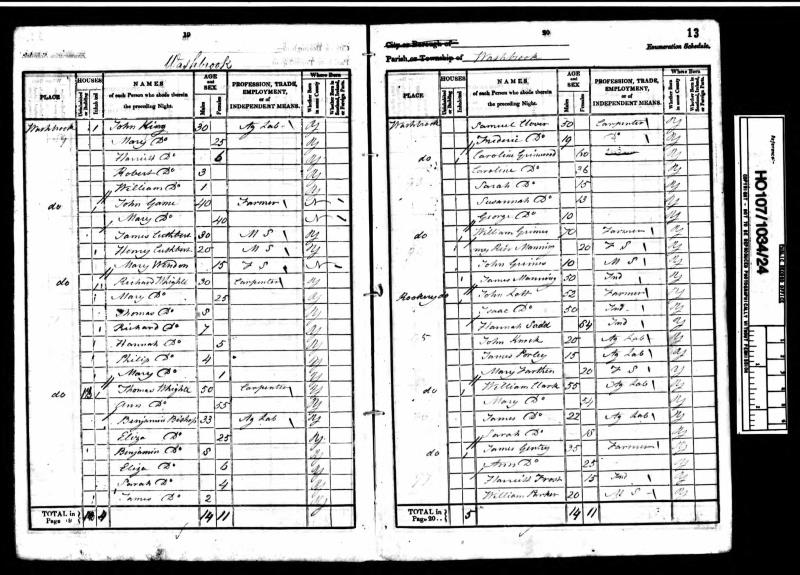 19
Washbrook
PLACE
HOUSES
Uninhabited or Building
Inhabited
NAMES
of each Person who abode therein the preceding Night.
AGE and SEX
Males
Females
PROFESSION, TRADE, EMPLOYMENT, or of INDEPENDENT MEANS.
Where Born
Whether Born in same County
Whether Born in Scotland, Ireland, or Foreign Parts.
Washbrook 1 John King 30 Ag Lab Y
Mary Do 25 Y
Harriss Do 6 Y
Robert Do 3 Y
William Do 1 Y
do John Game 40 Farmer N
Mary Do 40 N
James Cuthbert 30 M S Y
Henry Cuthbert 20 M S Y
Mary 15 F S N
do Richard Whight 30 Carpenter Y
Mary Do 25 Y
Thomas Do 8 Y
Richard Do 7 Y
Hannah Do 5 Y
Philip Do 4 Y
Mary Do 1 Y
do Thomas Whight 50 Carpenter Y
Ann Do 55 Y
Benjamin Bishop 33 Ag Lab Y
Eliza Do 25 Y
Benjamin Do 8 Y
Eliza Do 6 Y
Sarah Do 4 Y
James Do 2 Y
TOTAL in Page 19 4 14 11
20
13
City or Borough of
Enumeration Schedule.
Parish or Township of Washbrook
PLACE
HOUSES
Uninhabited or Building
Inhabited
NAMES
of each Person who abode therein the preceding Night.
AGE and SEX
Males
Females
PROFESSION, TRADE, EMPLOYMENT, or of INDEPENDENT MEANS.
Where Born
Whether Born in same County
Whether Born in Scotland, Ireland, or Foreign Parts.
Washbrook Samuel 50 Carpenter Y
Frederic Do 19 Do Y
do Caroline Grimwood 60 Y
Caroline Do 36 Y
Sarah Do 15 Y
Susannah Do 13 Y
George Do 10 Y
do William Grimes 70 Farmer Y
20 F S Y
John Grimes 10 M S Y
James Manning 50 Ind Y
Rookery do John Lott 52 Farmer Y
Isaac Do 50 Ind Y
Hannah Ladd 54 Ind Y
John Knock 20 Ag Lab Y
James Perley 15 Ag Lab Y
Mary Farthen 20 F S Y
do William Clark 55 Ag Lab Y
Mary Do Y
James Do 22 Ag Lab Y
Sarah Do 15 Y
do James Gentry 25 Farmer Y
Ann Do 25 Y
Harriss Frost 15 Ind Y
William Parker 20 M S Y
TOTAL in Page 20 5 14 11
Reference:-
HO107/1034/24